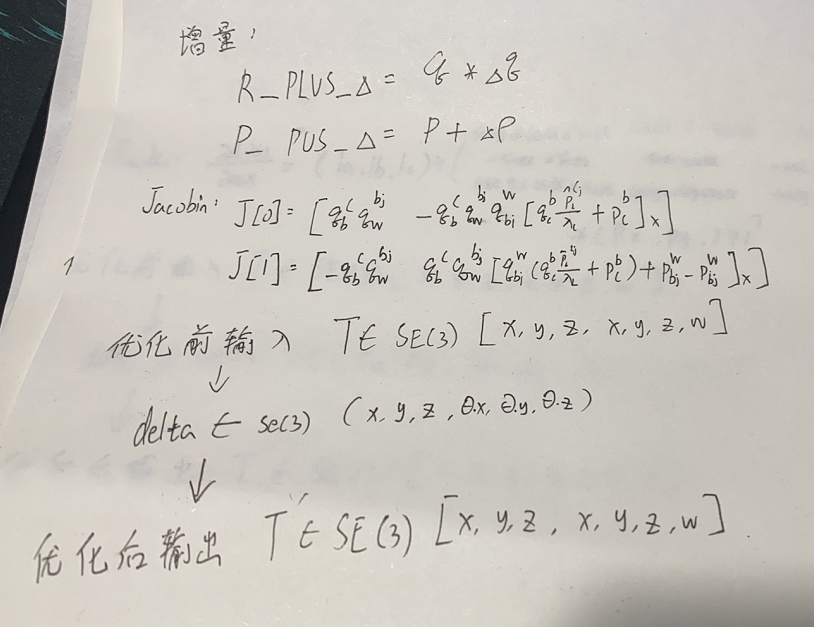 增量:
R_PLUS_Δ = q * Δq
P_ PUS_Δ = P + ΔP
Jacobin: J[0] = [q_b^c q_w^{bj} -q_b^c q_w^{bj} q_{bi}^w [q_c^b \frac{\hat{P}_i^{Cj}}{λ_i} + P_c^b]_x]
1 J[1] = [-q_b^c q_w^{bj} q_b^c q_w^{bj} [q_{bi}^w (q_c^b \frac{\bar{P}_i^{Cj}}{λ_i} + P_c^b) + P_{bj}^w - P_{bj}^w]_x]
优化前输入 T∈ SE(3) [x, y, z, x, y, z, w]
↓
delta ∈ se(3) (x, y, z, θ.x, θ.y, θ.z)
↓
优化后输出 T∈ SE(3) [x, y, z, x, y, z, w]